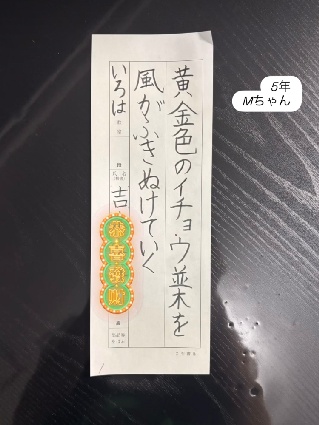 5年
Mちゃん
黄金色のイチョウ並木を
風がふきぬけていく
いろは
吉
恭喜發財